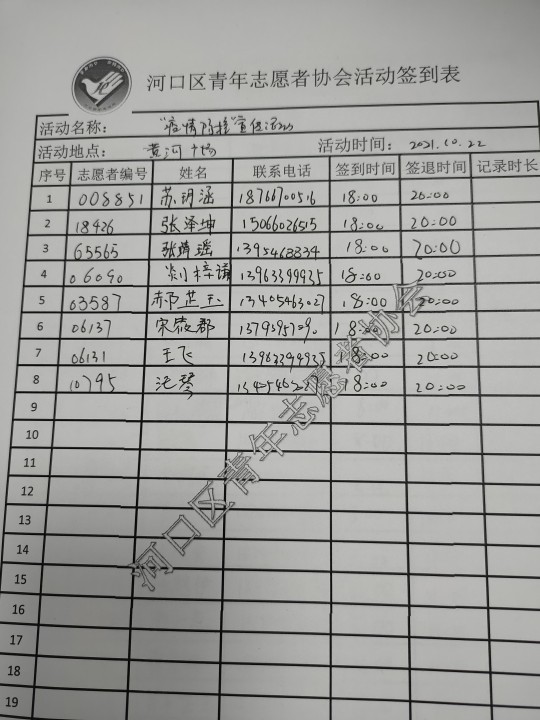 河口区青年志愿者协会活动签到表
活动名称： "疫情防控"宣传活动
活动地点： 黄河广场 活动时间： 2021.10.22
序号 志愿者编号 姓名 联系电话 签到时间 签退时间 记录时长
1 008851 苏玥涵 18766700516 18:00 20:00
2 18426 张泽坤 15066026515 18:00 20:00
3 65565 张靖瑶 18:00 20:00
4 06090 刘梓谦 13963399935 18:00 20:00
5 03587 郝芷玉 13405463027 18:00 20:00
6 06137 18:00 20:00
7 06131 王飞 18:00 20:00
8 10795 18:00 20:00
9
10
11
12
13
14
15
16
17
18
19
河口区青年志愿者协会